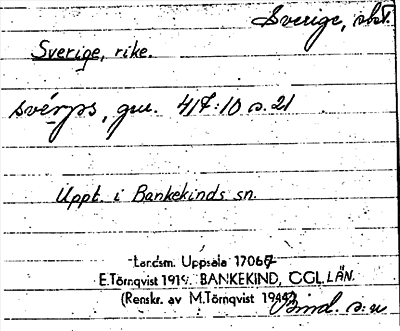 Sverige, sbst.
Sverige, rike.
svérjes, gen. 417:10 s. 21
Uppt. i Bankekinds sn.
Landsm. Uppsala 17067
E.Törnqvist 1919. BANKEKIND, ÖGL.LÄN.
(Renskr. av M.Törnqvist 1944)
Bind. s:n